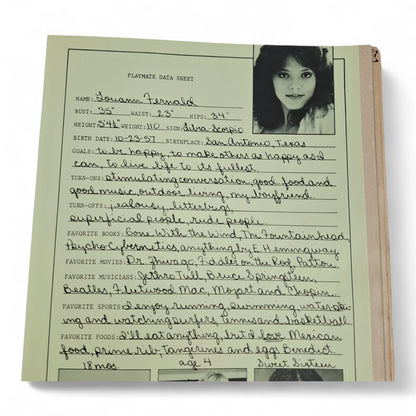 PLAYMATE DATA SHEET
NAME: Louann Fernald
BUST: 35" WAIST: 23" HIPS: 34"
HEIGHT: 5'4½" WEIGHT: 110 SIGN: Libra Scorpio
BIRTH DATE: 10-23-57 BIRTHPLACE: San Antonio, Texas
GOALS: to be happy, to make others as happy as I
can, to live life to its fullest.
TURN-ONS: stimulating conversation, good food and
good music, outdoor living, my boyfriend.
TURN-OFFS: jealousy, litterbugs,
superficial people, rude people.
FAVORITE BOOKS: Gone With the Wind, The Fountainhead
Psycho Cybernetics, anything by E. Hemingway
FAVORITE MOVIES: Dr. Zhivago, Fiddler on the Roof, Patton
FAVORITE MUSICIANS: Jethro Tull, Bruce Springsteen,
Beatles, Fleetwood Mac, Mozart and Chopin.
FAVORITE SPORTS: I enjoy running, swimming, water ski-
ing and watching surfers, tennis and basketball.
FAVORITE FOODS: I'll eat anything, but I love Mexican
food, prime rib, tangerines and eggs Benedict.
18 mos. age 4 Sweet Sixteen